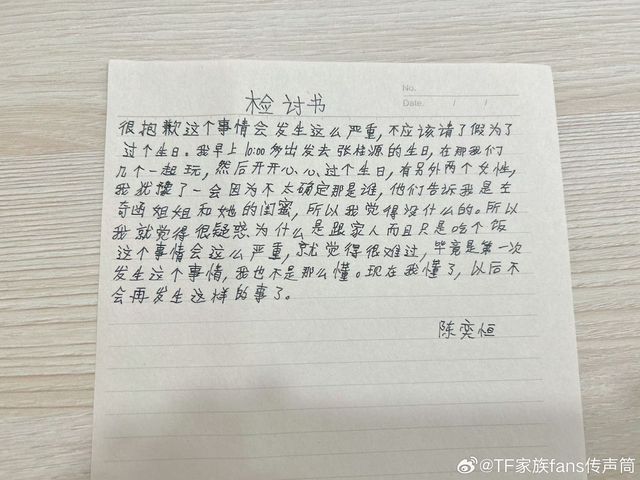 No.
Date. / /
检讨书
很抱歉这个事情会发生这么严重,不应该请了假为了
过个生日。我早上10:00多出发去张桂源的生日,在那我们
几个一起玩,然后开开心心过个生日,有另外两个女性,
我犹豫了一会因为不太确定那是谁,他们告诉我是左
奇函姐姐和她的闺蜜,所以我觉得没什么的。所以
我就觉得很疑惑为什么是跟家人而且只是吃个饭
这个事情会这么严重,就觉得很难过,毕竟是第一次
发生这个事情,我也不是那么懂。现在我懂了,以后不
会再发生这样的事了。
陈奕恒
@TF家族fans传声筒